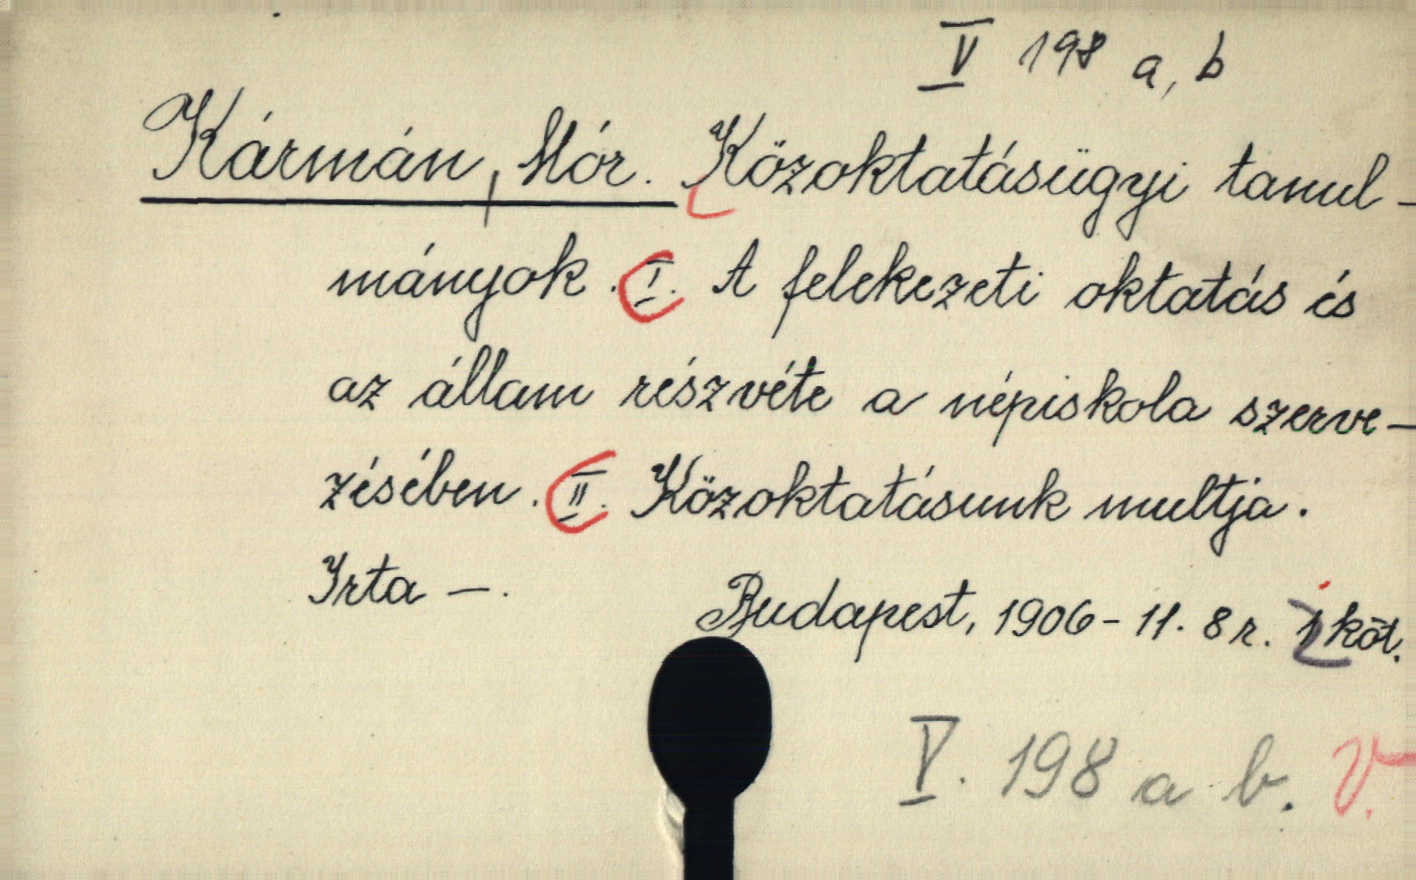 V 198 a, b
Kármán, Mór. Közoktatásügyi tanul-
mányok. I. A felekezeti oktatás és
az állam részvéte a népiskola szerve-
zésében. II. Közoktatásunk multja.
Irta —.
Budapest, 1906-11. 8 r. 2 köt.
V. 198 a b. V.